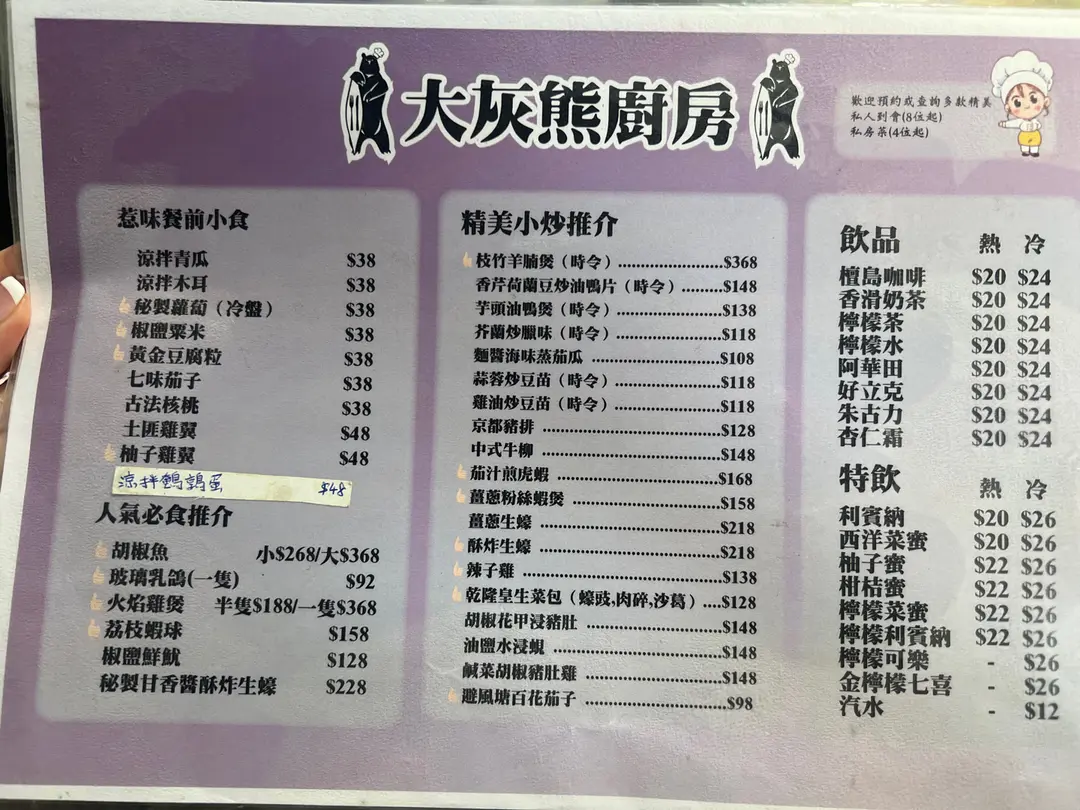 大灰熊廚房
歡迎預約或查詢多款精美
私人到會(8位起)
私房菜(4位起)
惹味餐前小食
涼拌青瓜 $38
涼拌木耳 $38
秘製蘿蔔（冷盤） $38
椒鹽粟米 $38
黃金豆腐粒 $38
七味茄子 $38
古法核桃 $38
土匪雞翼 $48
柚子雞翼 $48
涼拌鵪鶉蛋 $48
人氣必食推介
胡椒魚 小$268/大$368
玻璃乳鴿(一隻) $92
火焰雞煲 半隻$188/一隻$368
荔枝蝦球 $158
椒鹽鮮魷 $128
秘製甘香醬酥炸生蠔 $228
精美小炒推介
枝竹羊腩煲（時令）.......................$368
香芹荷蘭豆炒油鴨片（時令）.........$148
芋頭油鴨煲（時令）.......................$138
芥蘭炒臘味（時令）.......................$118
麵醬海味蒸茄瓜 ............................$108
蒜蓉炒豆苗（時令）.......................$118
雞油炒豆苗（時令）.......................$118
京都豬排 ........................................$128
中式牛柳 ........................................$148
茄汁煎虎蝦 ....................................$168
薑蔥粉絲蝦煲 ................................$158
薑蔥生蠔 ........................................$218
酥炸生蠔 ........................................$218
辣子雞 ............................................$138
乾隆皇生菜包（蠔豉,肉碎,沙葛）....$128
胡椒花甲浸豬肚 ............................$148
油鹽水浸蜆 ....................................$148
鹹菜胡椒豬肚雞 ............................$148
避風塘百花茄子 ............................$98
飲品 熱 冷
檀島咖啡 $20 $24
香滑奶茶 $20 $24
檸檬茶 $20 $24
檸檬水 $20 $24
阿華田 $20 $24
好立克 $20 $24
朱古力 $20 $24
杏仁霜 $20 $24
特飲 熱 冷
利賓納 $20 $26
西洋菜蜜 $20 $26
柚子蜜 $22 $26
柑桔蜜 $22 $26
檸檬菜蜜 $22 $26
檸檬利賓納 $22 $26
檸檬可樂 - $26
金檸檬七喜 - $26
汽水 - $12